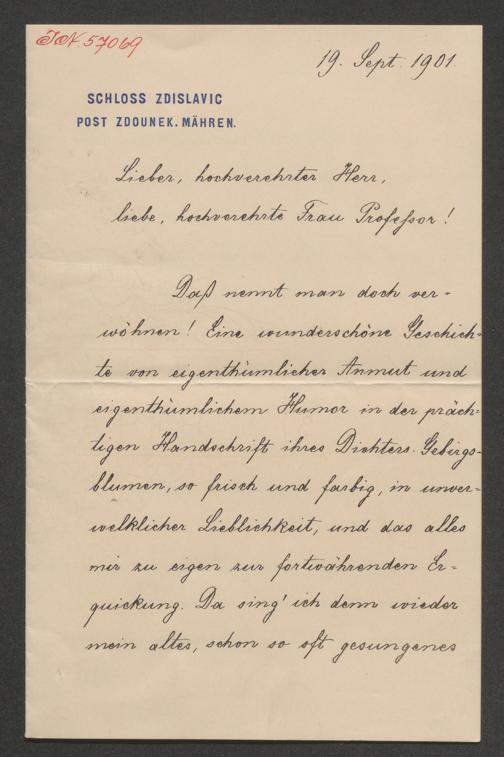 I.N. 57069
19. Sept. 1901.
SCHLOSS ZDISLAVIC
POST ZDOUNEK. MÄHREN.
Lieber, hochverehrter Herr,
liebe, hochverehrte Frau Professor!
Daß nennt man doch ver-
wöhnen! Eine wunderschöne Geschich-
te von eigenthümlicher Anmut und
eigenthümlichem Humor in der präch-
tigen Handschrift ihres Dichters. Gebirgs-
blumen, so frisch und farbig, in unver-
welklicher Lieblichkeit, und das alles
mir zu eigen zur fortwährenden Er-
quickung. Da sing' ich denn wieder
mein altes, schon so oft gesungenes